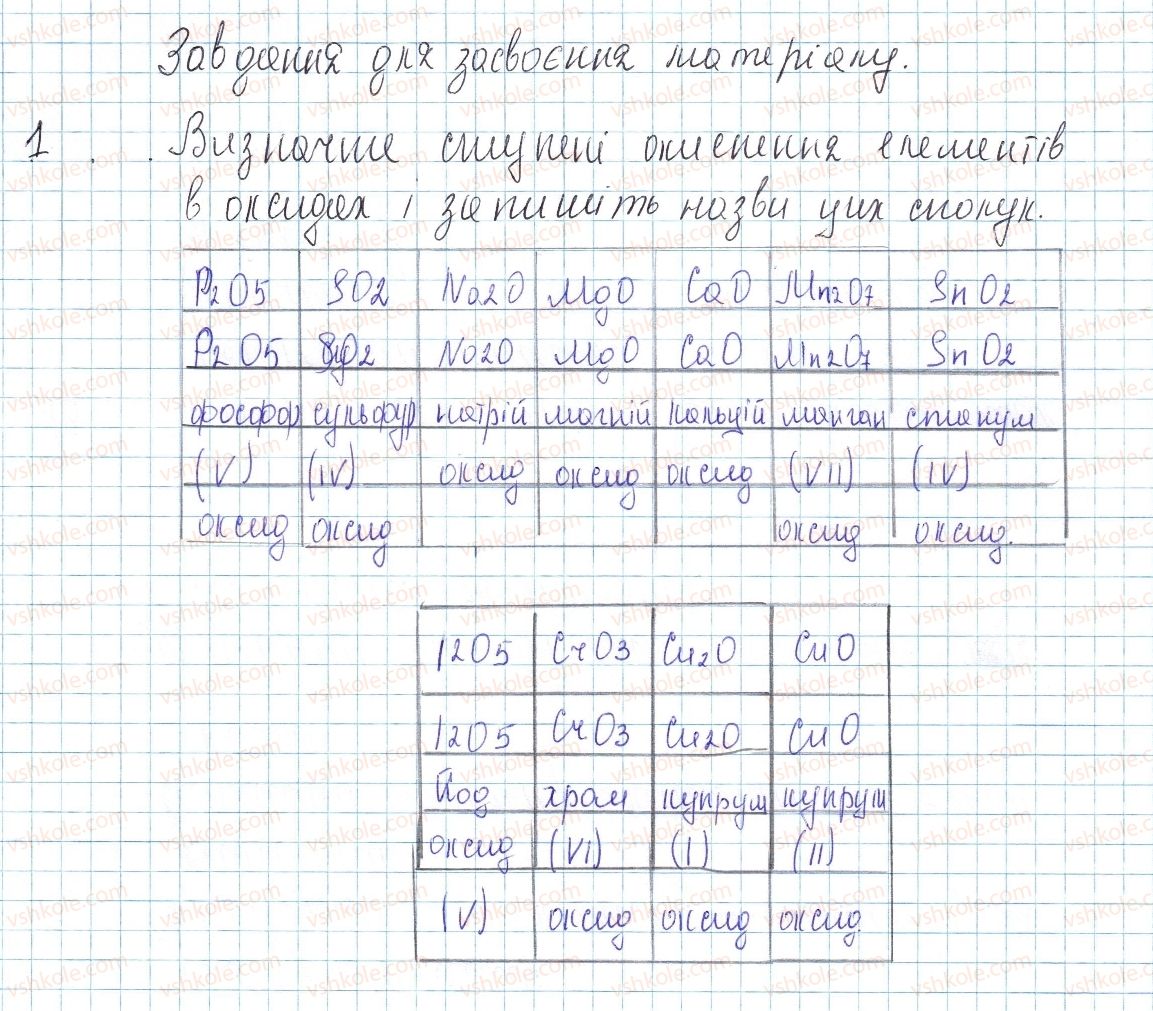 Завдання для засвоєння матеріалу.
1. Визначте ступені окиснення елементів
в оксидах і запишіть назви цих сполук.
P2O5 SO2 Na2O MgO CaO Mn2O7 SnO2
P2O5 SO2 Na2O MgO CaO Mn2O7 SnO2
фосфор сульфур натрій магній кальцій манган станум
(V) (IV) оксид оксид оксид (VII) (IV)
оксид оксид оксид оксид.
I2O5 CrO3 Cu2O CuO
I2O5 CrO3 Cu2O CuO
Йод хром купрум купрум
оксид (VI) (I) (II)
(V) оксид оксид оксид
vshkole.com